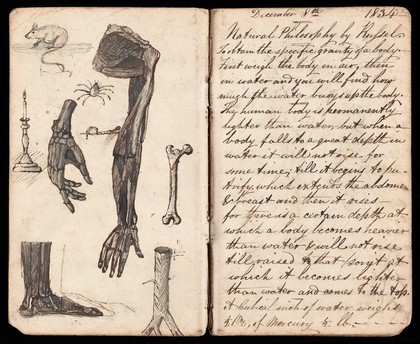 December 8th 1834
Natural Philosophy by Russel
To obtain the specific gravity of a body
First weigh the body in air, then
in water and you will find how
much the water buoys up the body.
The human body is permanently
lighter than water, but when a
body falls to a great depth in
water it will not rise for
some time; till it begins to pu
trify, which extends the abdomen
& breast and then it rises
for there is a certain depth at
which a body becomes heavier
than water & will not rise
till raised to that point at
which it becomes lighter
than water and comes to the top.
A Cubical inch of water weighs
of Mercury lb.